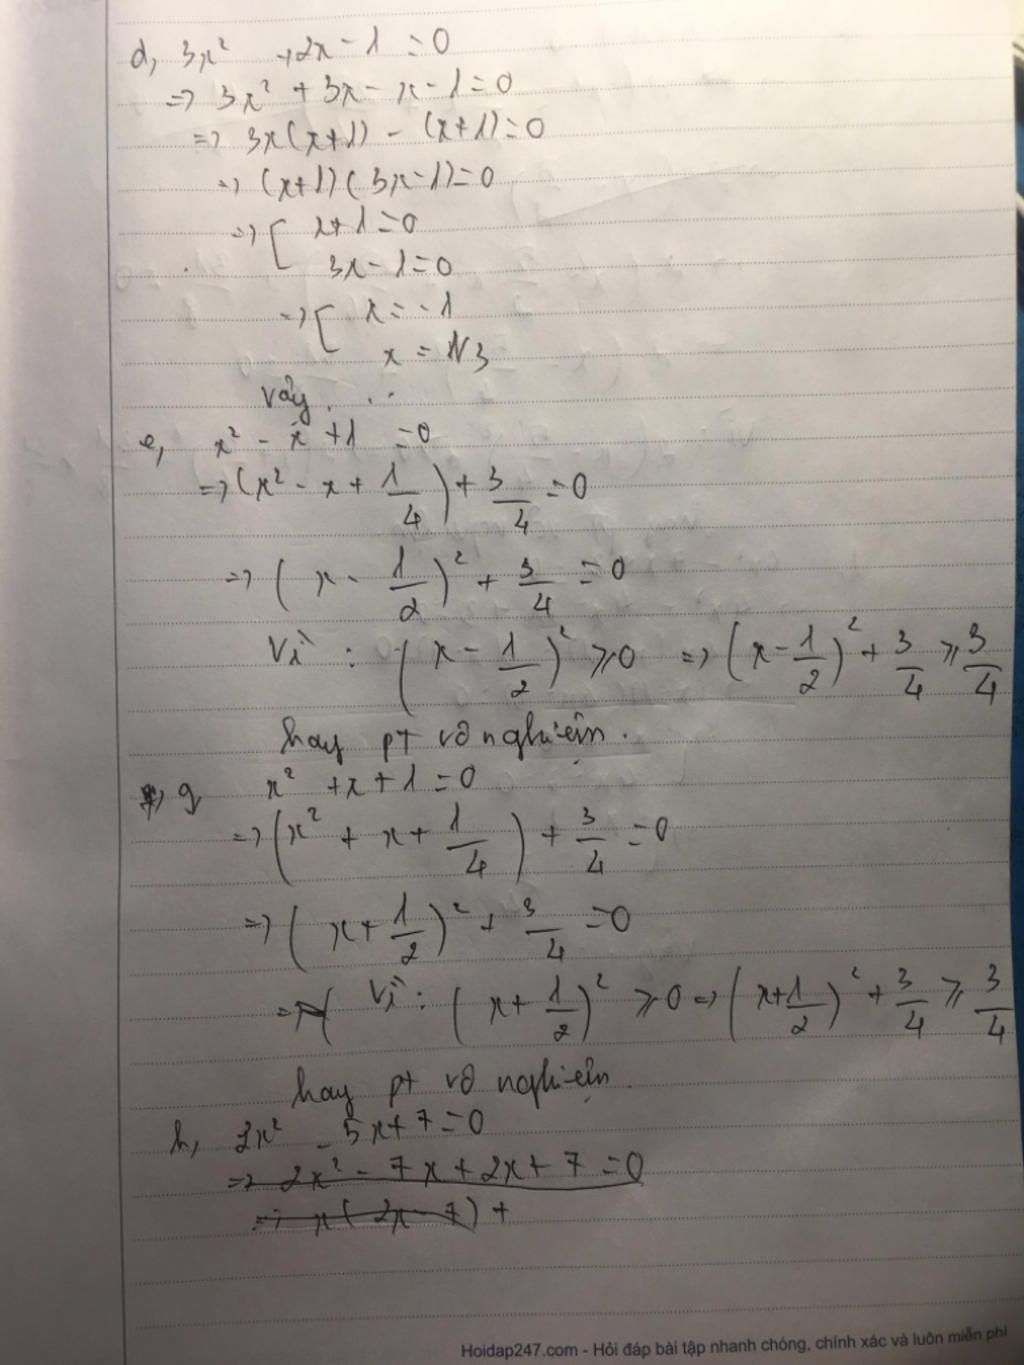 d, 3x² +2x - 1 = 0
=> 3x² + 3x - x - 1 = 0
=> 3x(x+1) - (x+1) = 0
=> (x+1)(3x-1) = 0
=> [ x+1 = 0
3x - 1 = 0
=> [ x = -1
x = 1/3
Vậy...
e, x² - x + 1 = 0
=> (x² - x + 1/4) + 3/4 = 0
=> (x - 1/2)² + 3/4 = 0
Vì : (x - 1/2)² ⩾ 0 => (x - 1/2)² + 3/4 ⩾ 3/4
hay pt vô nghiệm.
g x² + x + 1 = 0
=> (x² + x + 1/4) + 3/4 = 0
=> (x + 1/2)² + 3/4 = 0
=> Vì : (x + 1/2)² ⩾ 0 => (x + 1/2)² + 3/4 ⩾ 3/4
hay pt vô nghiệm.
h, 2x² - 5x + 7 = 0
=> 2x² - 7x + 2x + 7 = 0
=> x(2x - 7) +
Hoidap247.com - Hỏi đáp bài tập nhanh chóng, chính xác và luôn miễn phí